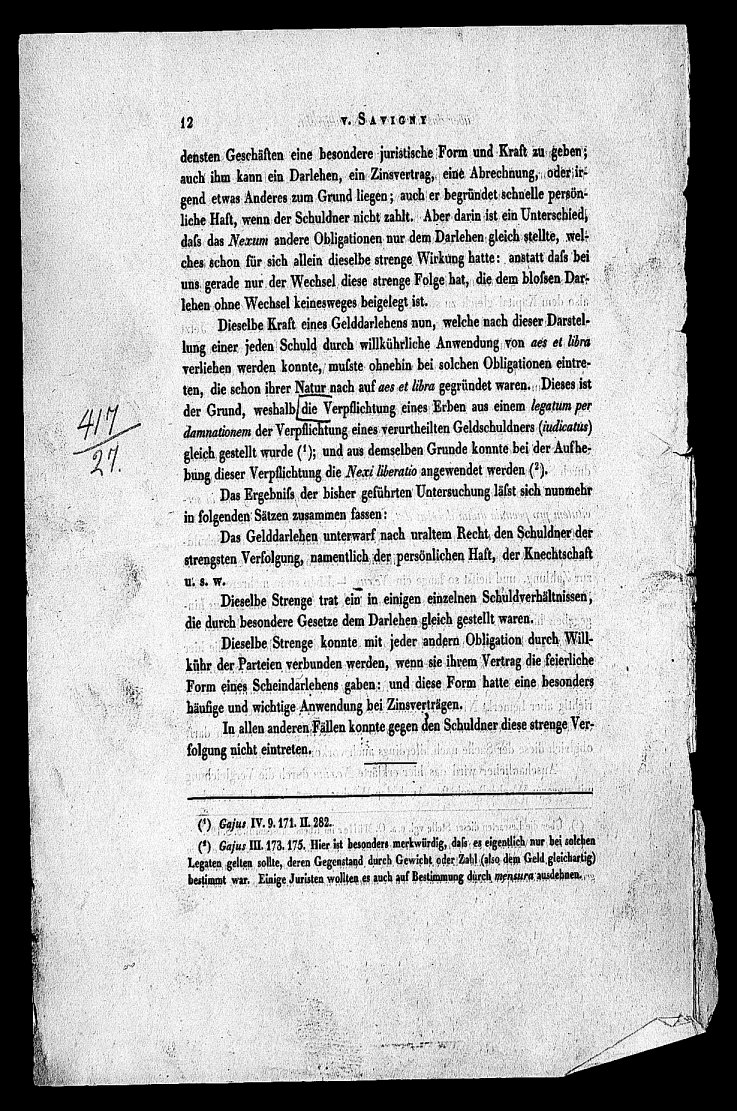 12
v. SAVIGNY
densten Geschäften eine besondere juristische Form und Kraft zu geben;
auch ihm kann ein Darlehen, ein Zinsvertrag, eine Abrechnung, oder ir-
gend etwas Anderes zum Grund liegen; auch er begründet schnelle persön-
liche Haft, wenn der Schuldner nicht zahlt. Aber darin ist ein Unterschied,
daſs das Nexum andere Obligationen nur dem Darlehen gleich stellte, wel-
ches schon für sich allein dieselbe strenge Wirkung hatte: anstatt daſs bei
uns gerade nur der Wechsel diese strenge Folge hat, die dem bloſsen Dar-
lehen ohne Wechsel keinesweges beigelegt ist.
Dieselbe Kraft eines Gelddarlehens nun, welche nach dieser Darstel-
lung einer jeden Schuld durch willkührliche Anwendung von aes et libra
verliehen werden konnte, muſste ohnehin bei solchen Obligationen eintre-
ten, die schon ihrer Natur nach auf aes et libra gegründet waren. Dieses ist
der Grund, weshalb die Verpflichtung eines Erben aus einem legatum per
damnationem der Verpflichtung eines verurtheilten Geldschuldners (iudicatus)
gleich gestellt wurde (¹); und aus demselben Grunde konnte bei der Aufhe-
bung dieser Verpflichtung die Nexi liberatio angewendet werden (²).
417
27.
Das Ergebniſs der bisher geführten Untersuchung läſst sich nunmehr
in folgenden Sätzen zusammen fassen:
Das Gelddarlehen unterwarf nach uraltem Recht den Schuldner der
strengsten Verfolgung, namentlich der persönlichen Haft, der Knechtschaft
u. s. w.
Dieselbe Strenge trat ein in einigen einzelnen Schuldverhältnissen,
die durch besondere Gesetze dem Darlehen gleich gestellt waren.
Dieselbe Strenge konnte mit jeder andern Obligation durch Will-
kühr der Parteien verbunden werden, wenn sie ihrem Vertrag die feierliche
Form eines Scheindarlehens gaben: und diese Form hatte eine besonders
häufige und wichtige Anwendung bei Zinsverträgen.
In allen anderen Fällen konnte gegen den Schuldner diese strenge Ver-
folgung nicht eintreten.
(¹) Gajus IV. 9. 171. II. 282.
(²) Gajus III. 173. 175. Hier ist besonders merkwürdig, daſs es eigentlich nur bei solchen
Legaten gelten sollte, deren Gegenstand durch Gewicht oder Zahl (also dem Geld gleichartig)
bestimmt war. Einige Juristen wollten es auch auf Bestimmung durch mensura ausdehnen.